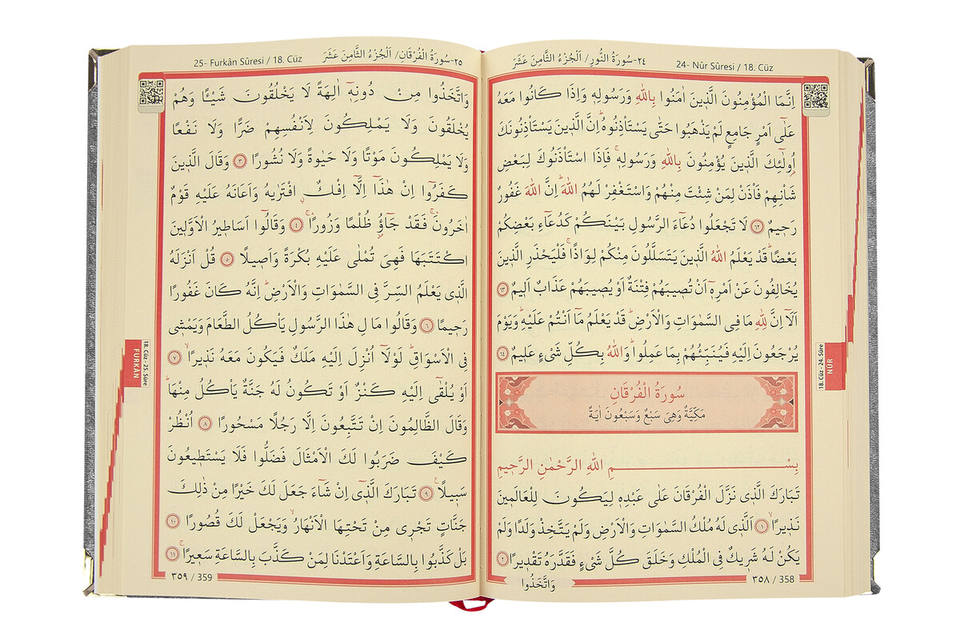 24- Nûr Sûresi / 18. Cüz
٢٤-سُورَةُ النُّورِ/ اَلْجُزْءُ الثَّامِنَ عَشَرَ
اِنَّمَا الْمُؤْمِنُونَ الَّذ۪ينَ اٰمَنُوا بِاللّٰهِ وَرَسُولِه۪ وَاِذَا كَانُوا مَعَهُ
عَلٰٓى اَمْرٍ جَامِعٍ لَمْ يَذْهَبُوا حَتّٰى يَسْتَأْذِنُوهُۜ اِنَّ الَّذ۪ينَ يَسْتَأْذِنُونَكَ
اُو۬لٰٓئِكَ الَّذ۪ينَ يُؤْمِنُونَ بِاللّٰهِ وَرَسُولِه۪ۚ فَاِذَا اسْتَأْذَنُوكَ لِبَعْضِ
شَأْنِهِمْ فَأْذَنْ لِمَنْ شِئْتَ مِنْهُمْ وَاسْتَغْفِرْ لَهُمُ اللّٰهَۜ اِنَّ اللّٰهَ غَفُورٌ
رَح۪يمٌ ﴿٦٢﴾ لَا تَجْعَلُوا دُعَٓاءَ الرَّسُولِ بَيْنَكُمْ كَدُعَٓاءِ بَعْضِكُمْ
بَعْضًاۜ قَدْ يَعْلَمُ اللّٰهُ الَّذ۪ينَ يَتَسَلَّلُونَ مِنْكُمْ لِوَاذًاۚ فَلْيَحْذَرِ الَّذ۪ينَ
يُخَالِفُونَ عَنْ اَمْرِه۪ٓ اَنْ تُص۪يبَهُمْ فِتْنَةٌ اَوْ يُص۪يبَهُمْ عَذَابٌ اَل۪يمٌ ﴿٦٣﴾
اَلَٓا اِنَّ لِلّٰهِ مَا فِي السَّمٰوَاتِ وَالْاَرْضِۜ قَدْ يَعْلَمُ مَٓا اَنْتُمْ عَلَيْهِۜ وَيَوْمَ
يُرْجَعُونَ اِلَيْهِ فَيُنَبِّئُهُمْ بِمَا عَمِلُواۜ وَاللّٰهُ بِكُلِّ شَيْءٍ عَل۪يمٌ ﴿٦٤﴾
سُورَةُ الْفُرْقَانِ
مَكِّيَّةٌ وَهِيَ سَبْعٌ وَسَبْعُونَ اٰيَةً
بِسْمِ اللّٰهِ الرَّحْمٰنِ الرَّح۪يمِ
تَبَارَكَ الَّذ۪ي نَزَّلَ الْفُرْقَانَ عَلٰى عَبْدِه۪ لِيَكُونَ لِلْعَالَم۪ينَ
نَذ۪يرًاۙ ﴿١﴾ اَلَّذ۪ي لَهُ مُلْكُ السَّمٰوَاتِ وَالْاَرْضِ وَلَمْ يَتَّخِذْ وَلَدًا وَلَمْ
يَكُنْ لَهُ شَر۪يكٌ فِي الْمُلْكِ وَخَلَقَ كُلَّ شَيْءٍ فَقَدَّرَهُ تَقْد۪يرًا ﴿٢﴾
وَاتَّخَذُوا
٣٥٨ / 358
18. Cüz - 24. Sûre
NÛR
25- Furkân Sûresi / 18. Cüz
٢٥-سُورَةُ الْفُرْقَانِ/ اَلْجُزْءُ الثَّامِنَ عَشَرَ
وَاتَّخَذُوا مِنْ دُونِه۪ٓ اٰلِهَةً لَا يَخْلُقُونَ شَيْـًٔا وَهُمْ
يُخْلَقُونَ وَلَا يَمْلِكُونَ لِاَنْفُسِهِمْ ضَرًّا وَلَا نَفْعًا
وَلَا يَمْلِكُونَ مَوْتًا وَلَا حَيٰوةً وَلَا نُشُورًا ﴿٣﴾ وَقَالَ الَّذ۪ينَ
كَفَرُٓوا اِنْ هٰذَٓا اِلَّٓا اِفْكٌۨ افْتَرٰيهُ وَاَعَانَهُ عَلَيْهِ قَوْمٌ
اٰخَرُونَۚ فَقَدْ جَٓاؤُ۫ ظُلْمًا وَزُورًاۚ ﴿٤﴾ وَقَالُٓوا اَسَاط۪يرُ الْاَوَّل۪ينَ
اكْتَتَبَهَا فَهِيَ تُمْلٰى عَلَيْهِ بُكْرَةً وَاَص۪يلًا ﴿٥﴾ قُلْ اَنْزَلَهُ
الَّذ۪ي يَعْلَمُ السِّرَّ فِي السَّمٰوَاتِ وَالْاَرْضِۜ اِنَّهُ كَانَ غَفُورًا
رَح۪يمًا ﴿٦﴾ وَقَالُوا مَا لِ هٰذَا الرَّسُولِ يَأْكُلُ الطَّعَامَ وَيَمْش۪ي
فِي الْاَسْوَاقِۜ لَوْلَٓا اُنْزِلَ اِلَيْهِ مَلَكٌ فَيَكُونَ مَعَهُ نَذ۪يرًاۙ ﴿٧﴾
اَوْ يُلْقٰٓى اِلَيْهِ كَنْزٌ اَوْ تَكُونُ لَهُ جَنَّةٌ يَأْكُلُ مِنْهَاۜ
وَقَالَ الظَّالِمُونَ اِنْ تَتَّبِعُونَ اِلَّا رَجُلًا مَسْحُورًا ﴿٨﴾ اُنْظُرْ
كَيْفَ ضَرَبُوا لَكَ الْاَمْثَالَ فَضَلُّوا فَلَا يَسْتَط۪يعُونَ
سَب۪يلًا۟ ﴿٩﴾ تَبَارَكَ الَّذ۪ٓي اِنْ شَٓاءَ جَعَلَ لَكَ خَيْرًا مِنْ ذٰلِكَ
جَنَّاتٍ تَجْر۪ي مِنْ تَحْتِهَا الْاَنْهَارُۙ وَيَجْعَلْ لَكَ قُصُورًا ﴿١٠﴾
بَلْ كَذَّبُوا بِالسَّاعَةِ وَاَعْتَدْنَا لِمَنْ كَذَّبَ بِالسَّاعَةِ سَع۪يرًاۚ ﴿١١﴾
٣٥٩ / 359
18. Cüz - 25. Sûre
FURKÂN